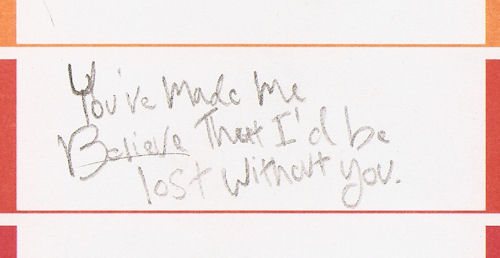 You've Made Me
Believe That I'd be
lost without you.